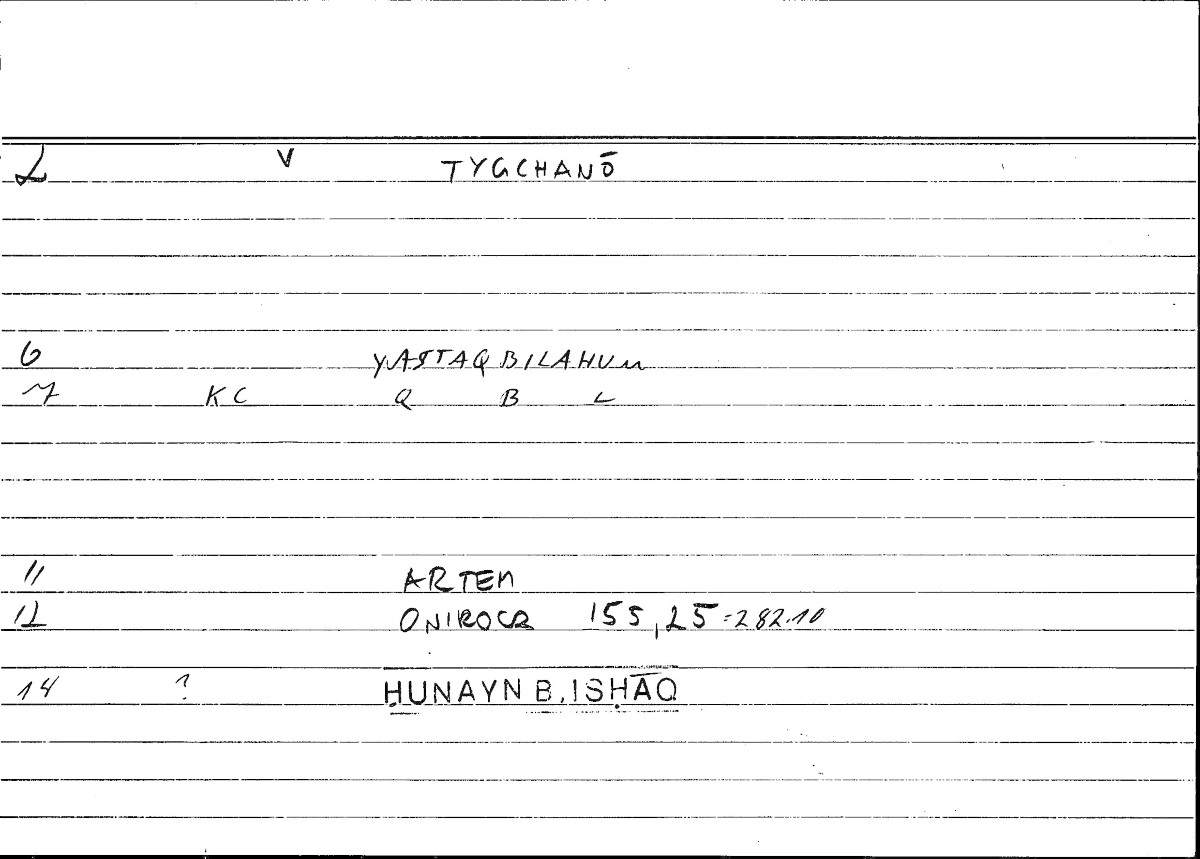 2 V TYGCHANŌ
6 YASTAQBILAHUM
7 KC Q B L
11 ARTEM
12 ONIROCR 155,25=282.10
14 ? ḤUNAYN B. ISḤĀQ